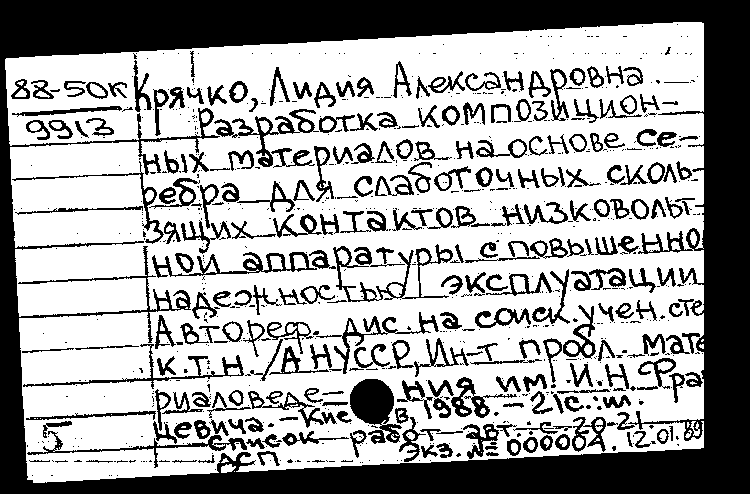 88-50к Крячко, Лидия Александровна.
9913 Разработка композицион-
ных материалов на основе се-
ребра для слаботочных сколь-
зящих контактов низковольт-
ной аппаратуры с повышенно
надежностью эксплуатации
Автореф. дис. на соиск. учен. сте
к.т.н. / АНУССР, Ин-т пробл. мате
риаловеде- ния им. И.Н. Фра
цевича. - Кие в, 1988. - 21с.: ил.
5 Список работ авт.: с. 20-21
ДСП. Экз. № 00000А. 12.01.89